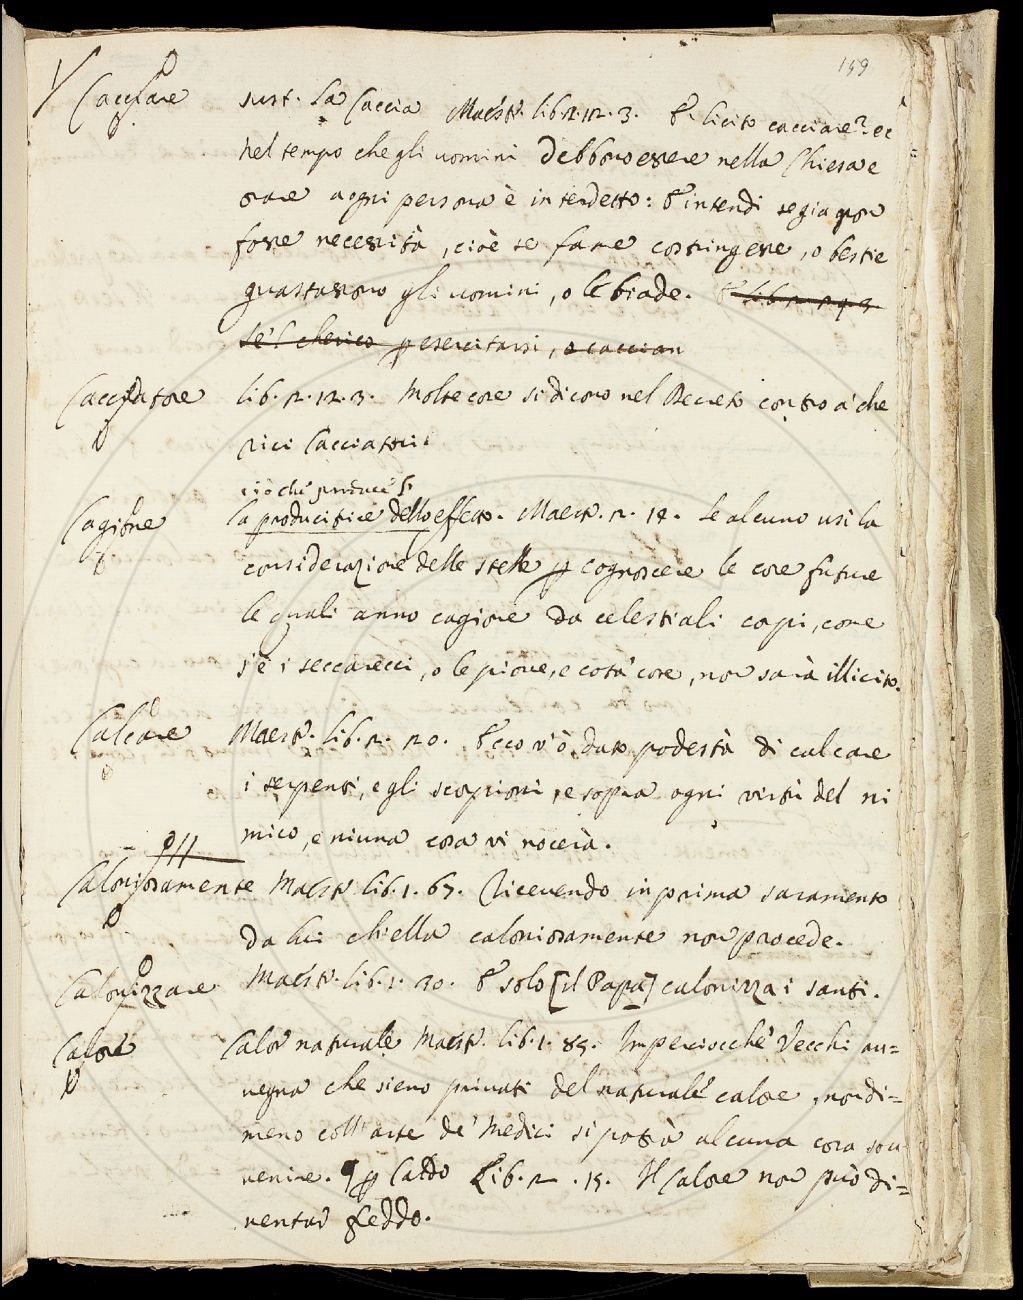 159
Cacciare sust. La Caccia Maestr. lib. 2. 12. 3. E licito cacciare? et
nel tempo che gli uomini debbono essere nella Chiesa e
orare a ogni persona è interdetto: E intendi se gia non
fosse necessità, cioè se fame costringesse, o bestie
guastassono gli uomini, o le biade. E lib. 2. 24. 3
se'l cherico p esercitarsi, o cacciar
Cacciatore lib. 2. 12. 3. Molte cose si dicono nel Decreto contro a' che
rici Cacciatori.
ciò che produce
Cagione la producitrice dello effetto. Maestr. 2. 14. Se alcuno usi la
considerazione delle stelle p cognoscere le cose future
le quali anno cagione da celestiali corpi, come
s'è i seccarecci, o le piove, e cota' cose, non sarà illicito.
Calcare Maestr. lib. 2. 20. Ecco v'ò dato podestà di calcare
i serpenti, e gli scorpioni, e sopra ogni virtù del ni
mico, e niuna cosa vi nocerà.
Caloniosamente Maestr. lib. 1. 67. Ricevendo in prima saramento
da lui ch'ella caloniosamente non procede.
Calonizzare Maestr. lib. 1. 30. E solo [il Papa] calonizza i santi.
Calore Calor naturale Maestr. lib. 1. 85. Imperciocchè Vecchi av=
vegna che sieno privati del naturale calore, nondi=
meno coll'arte de' Medici si potrà alcuna cosa sov
venire. § p Caldo Lib. 2. 15. Il Calore non può di=
ventar freddo.